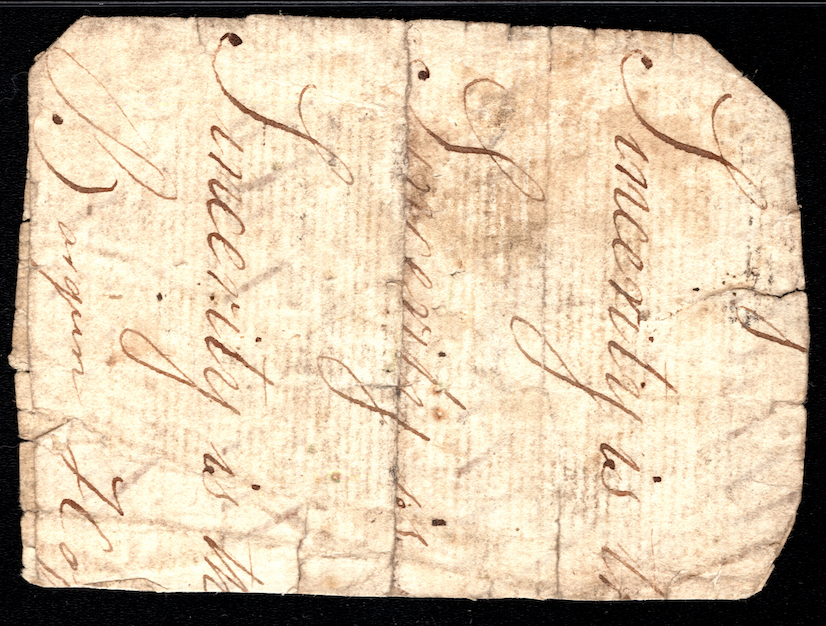 Sincerity is t
Sincerity is
Sincerity is th